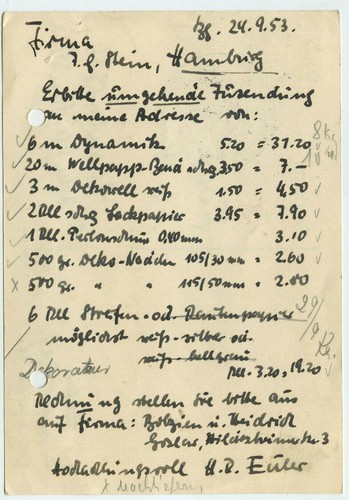 24.9.53.
Firma
J. C. Stein, Hamburg
Erbitte umgehende Zusendung
an meine Adresse von:
6 m Dynamik 5.20 = 31.20
20 m Wellpapp- 3,50 = 7.-
3 m Dekowell weiß 1.50 = 4,50
2 Rll schwg Lackpapier 3.95 = 7.90
1 Rll. Perlonschnur 0,40 mm 3.10
500 gr. Deko-Nadeln 105/30 mm = 2.60
x 500 gr. " " 115/50 mm = 2.80
6 Rll Streifen- od. Rautenpapier
möglichst weiß-silber od.
weiß-hellgrau
Dekorateur Rll. 3.20 = 19.20
29/9
Rechnung stellen Sie bitte aus
auf Firma: u. Heidrich
Goslar, Hildesheimerstr. 3
Hochachtungsvoll H. D. Euler
x Nachlieferung